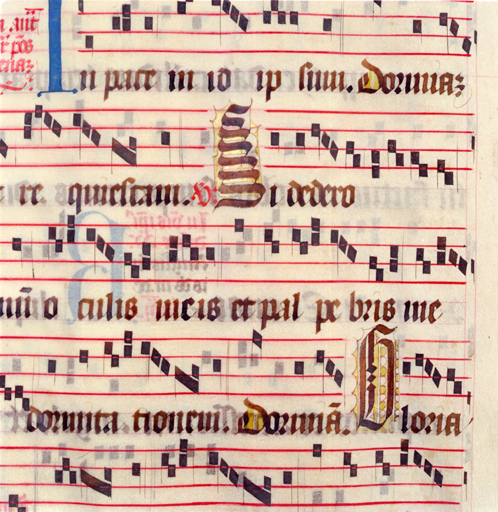 In pace in id ip sum. Dormiaz
re. quiescam. Si dedero
culis meis et pal pe bris me
dormita tionem. Dormiā. Gloria